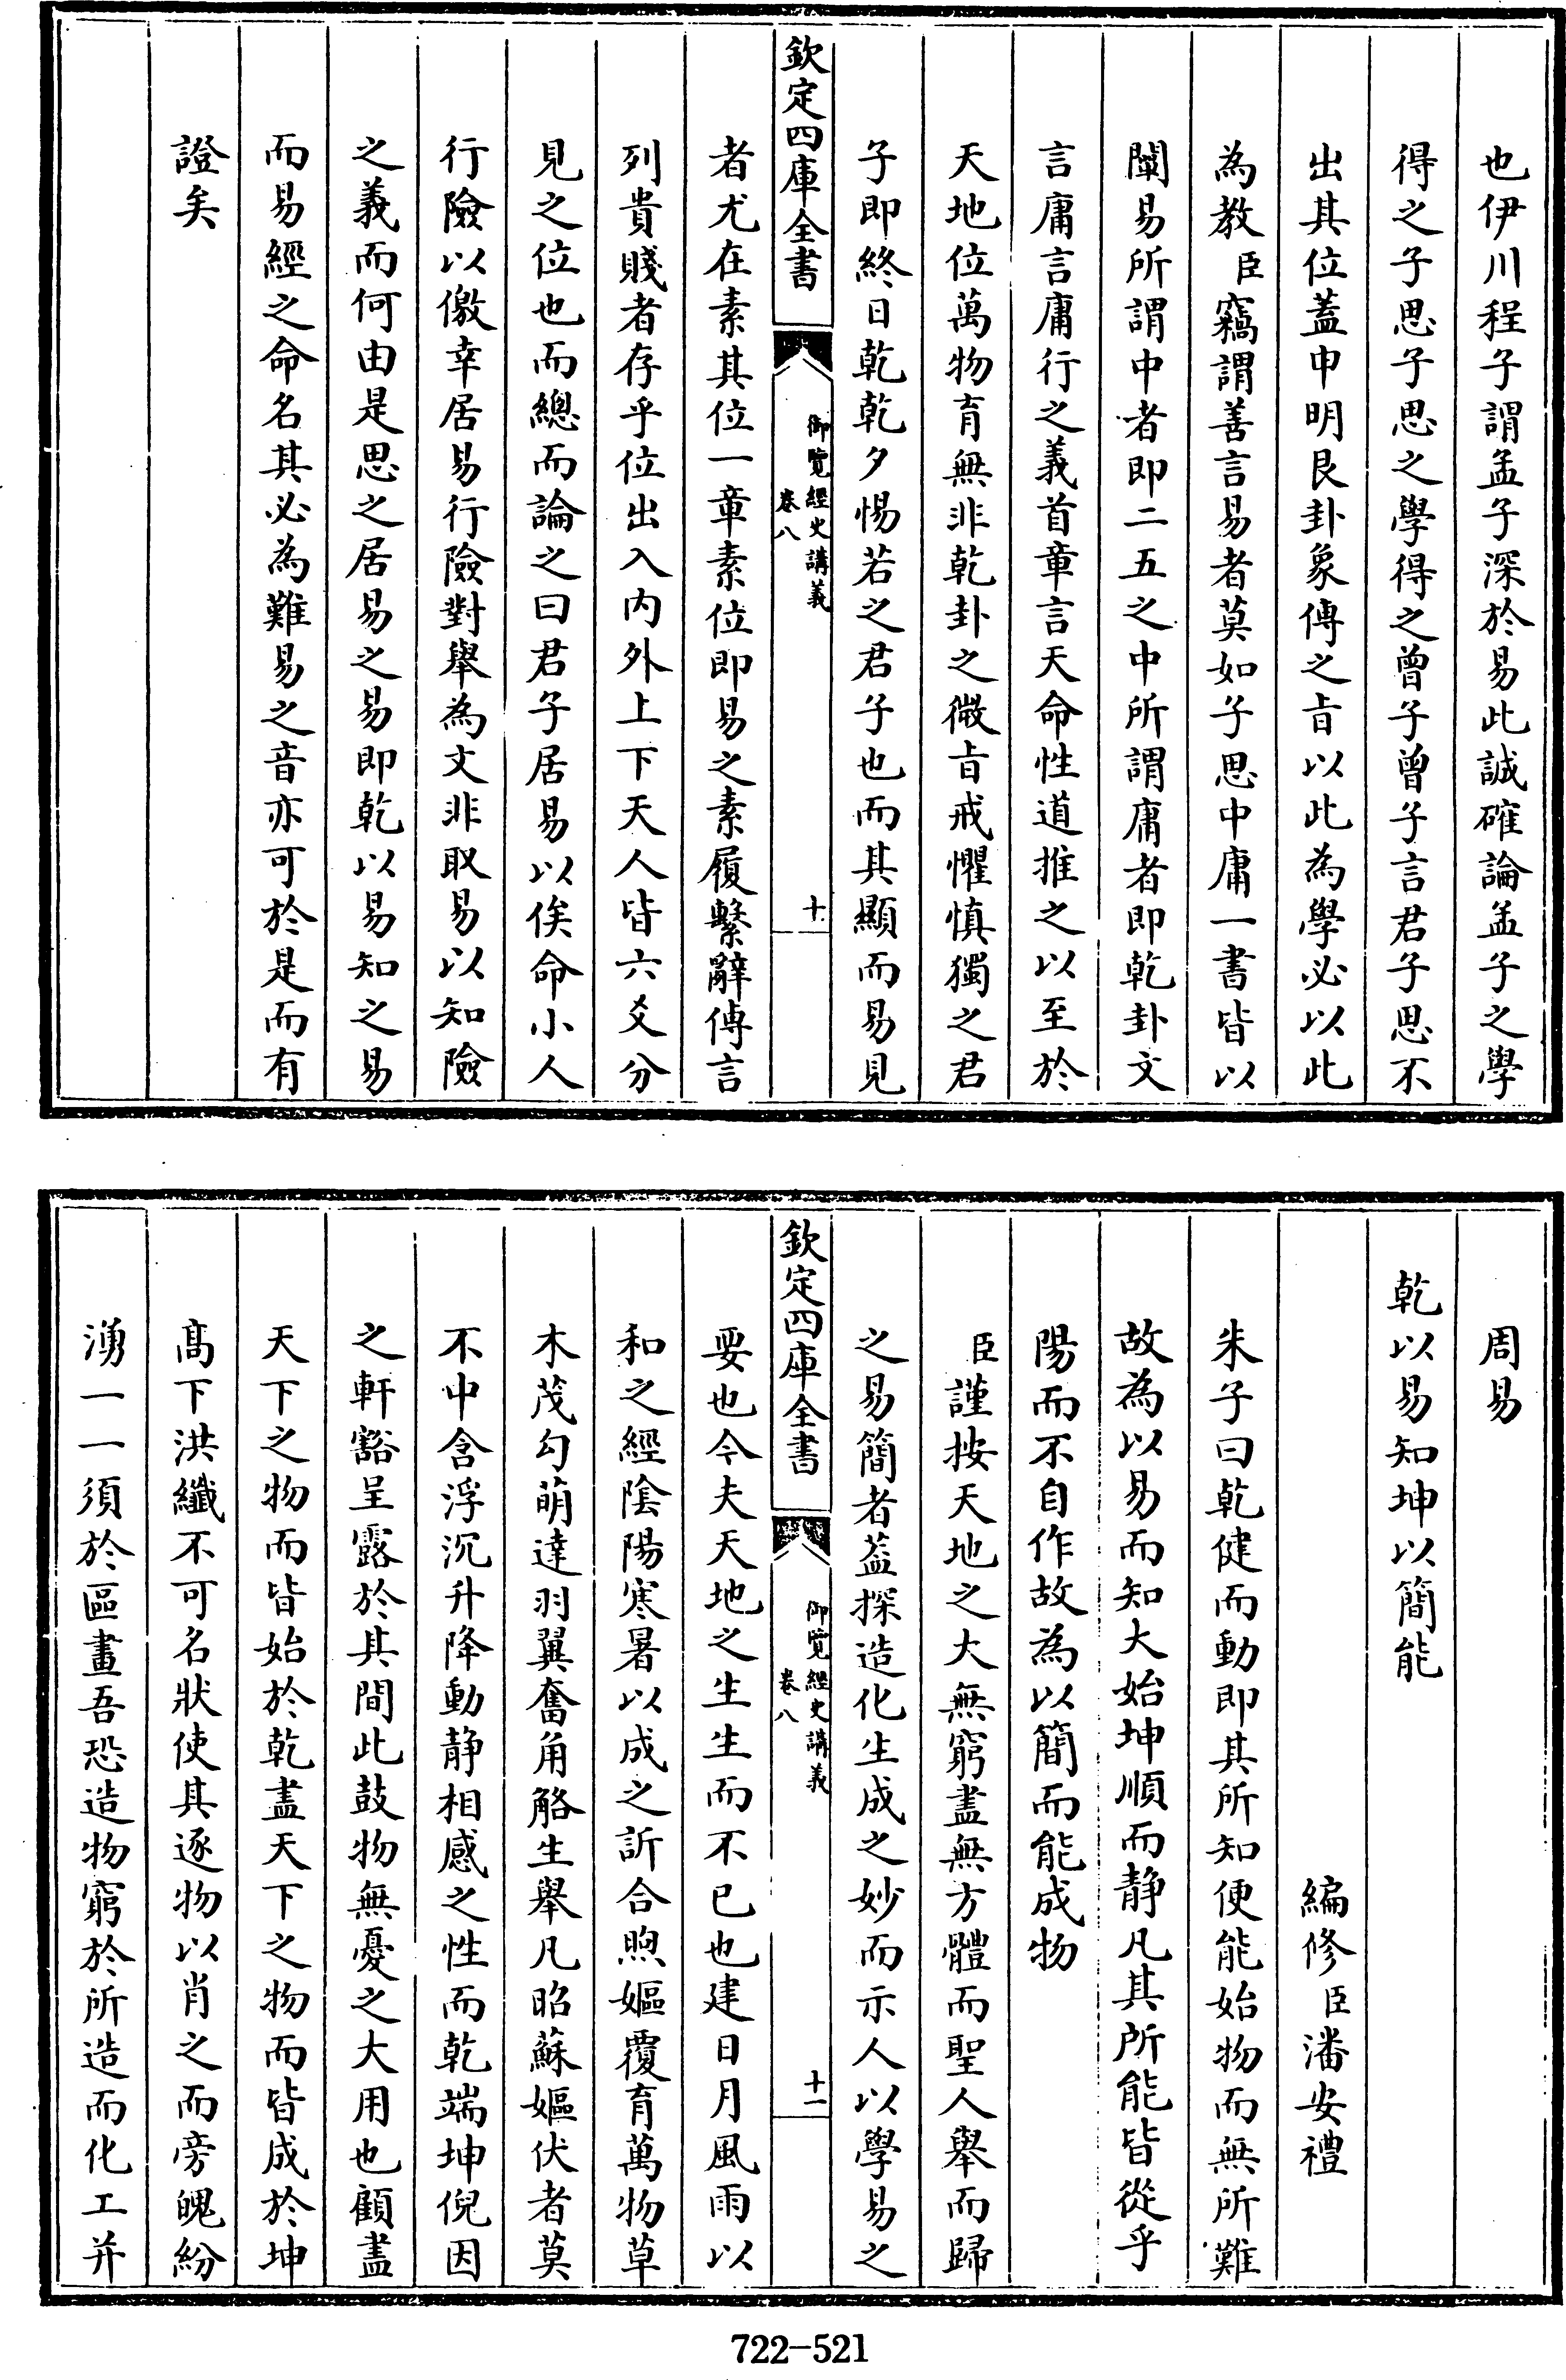 也伊川程子謂孟子深於易此誠確論孟子之學
得之子思子思之學得之曾子曾子言君子思不
出其位蓋申明艮卦象傳之㫖以此為學必以此
為教臣竊謂善言易者莫如子思中庸一書皆以
闡易所謂中者即二五之中所謂庸者即乾卦文
言庸言庸行之義首章言天命性道推之以至於
天地位萬物育無非乾卦之微㫖戒懼慎獨之君
子即終日乾乾夕惕若之君子也而其顯而易見
欽定四庫全書
御覽經史講義
卷八
十
者尤在素其位一章素位即易之素履繫辭傳言
列貴賤者存乎位出入内外上下天人皆六爻分
見之位也而總而論之曰君子居易以俟命小人
行險以儌幸居易行險對舉為文非取易以知險
之義而何由是思之居易之易即乾以易知之易
而易經之命名其必為難易之音亦可於是而有
證矣
周易
乾以易知坤以簡能
編修臣潘安禮
朱子曰乾健而動即其所知便能始物而無所難
故為以易而知大始坤順而静凡其所能皆從乎
陽而不自作故為以簡而能成物
臣謹按天地之大無窮盡無方體而聖人舉而歸
之易簡者葢探造化生成之妙而示人以學易之
欽定四庫全書
御覽經史講義
卷八
十一
要也今夫天地之生生而不已也建日月風雨以
和之經陰陽寒暑以成之訢合煦嫗覆育萬物草
木茂勾萌達羽翼奮角觡生舉凡昭蘇嫗伏者莫
不中含浮沉升降動静相感之性而乾端坤倪因
之軒豁呈露於其間此鼓物無憂之大用也顧盡
天下之物而皆始於乾盡天下之物而皆成於坤
髙下洪纖不可名狀使其逐物以肖之而旁魄紛
湧一一須於區畫吾恐造物窮於所造而化工并
722-521